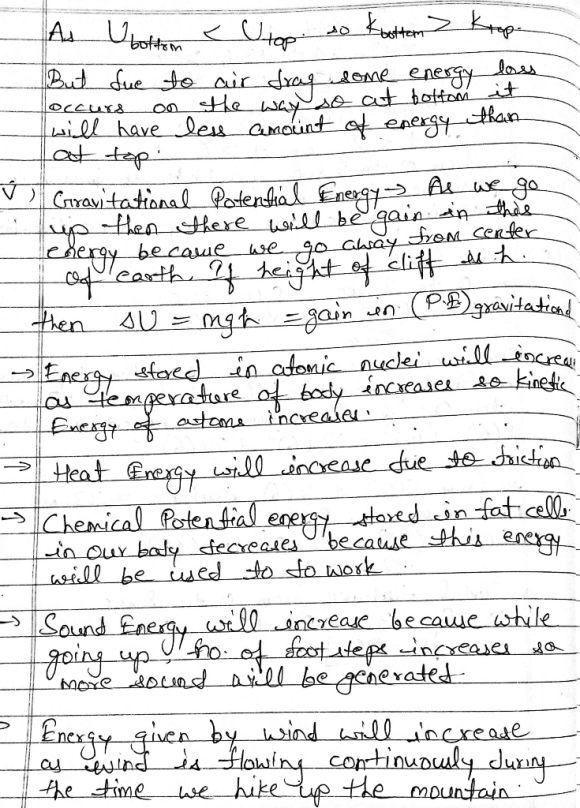 As U bottom < U top. so k bottom > k top.
But due to air drag some energy loss
occurs on the way so at bottom it
will have less amount of energy than
at top.
V) Gravitational Potential Energy → As we go
up then there will be gain in this
energy because we go away from center
of earth. If height of cliff is h.
then ΔU = mgh = gain in (P.E) gravitational
→ Energy stored in atomic nuclei will increas
as temperature of body increases so kinetic
Energy of astoms increases.
→ Heat Energy will increase due to friction
→ Chemical Potential energy stored in fat cells
in our body decreases because this energy
will be used to do work
→ Sound Energy will increase because while
going up, no. of foot steps increases so
more sound will be generated.
Energy given by wind will increase
as wind is flowing continuously during
the time we hike up the mountain.